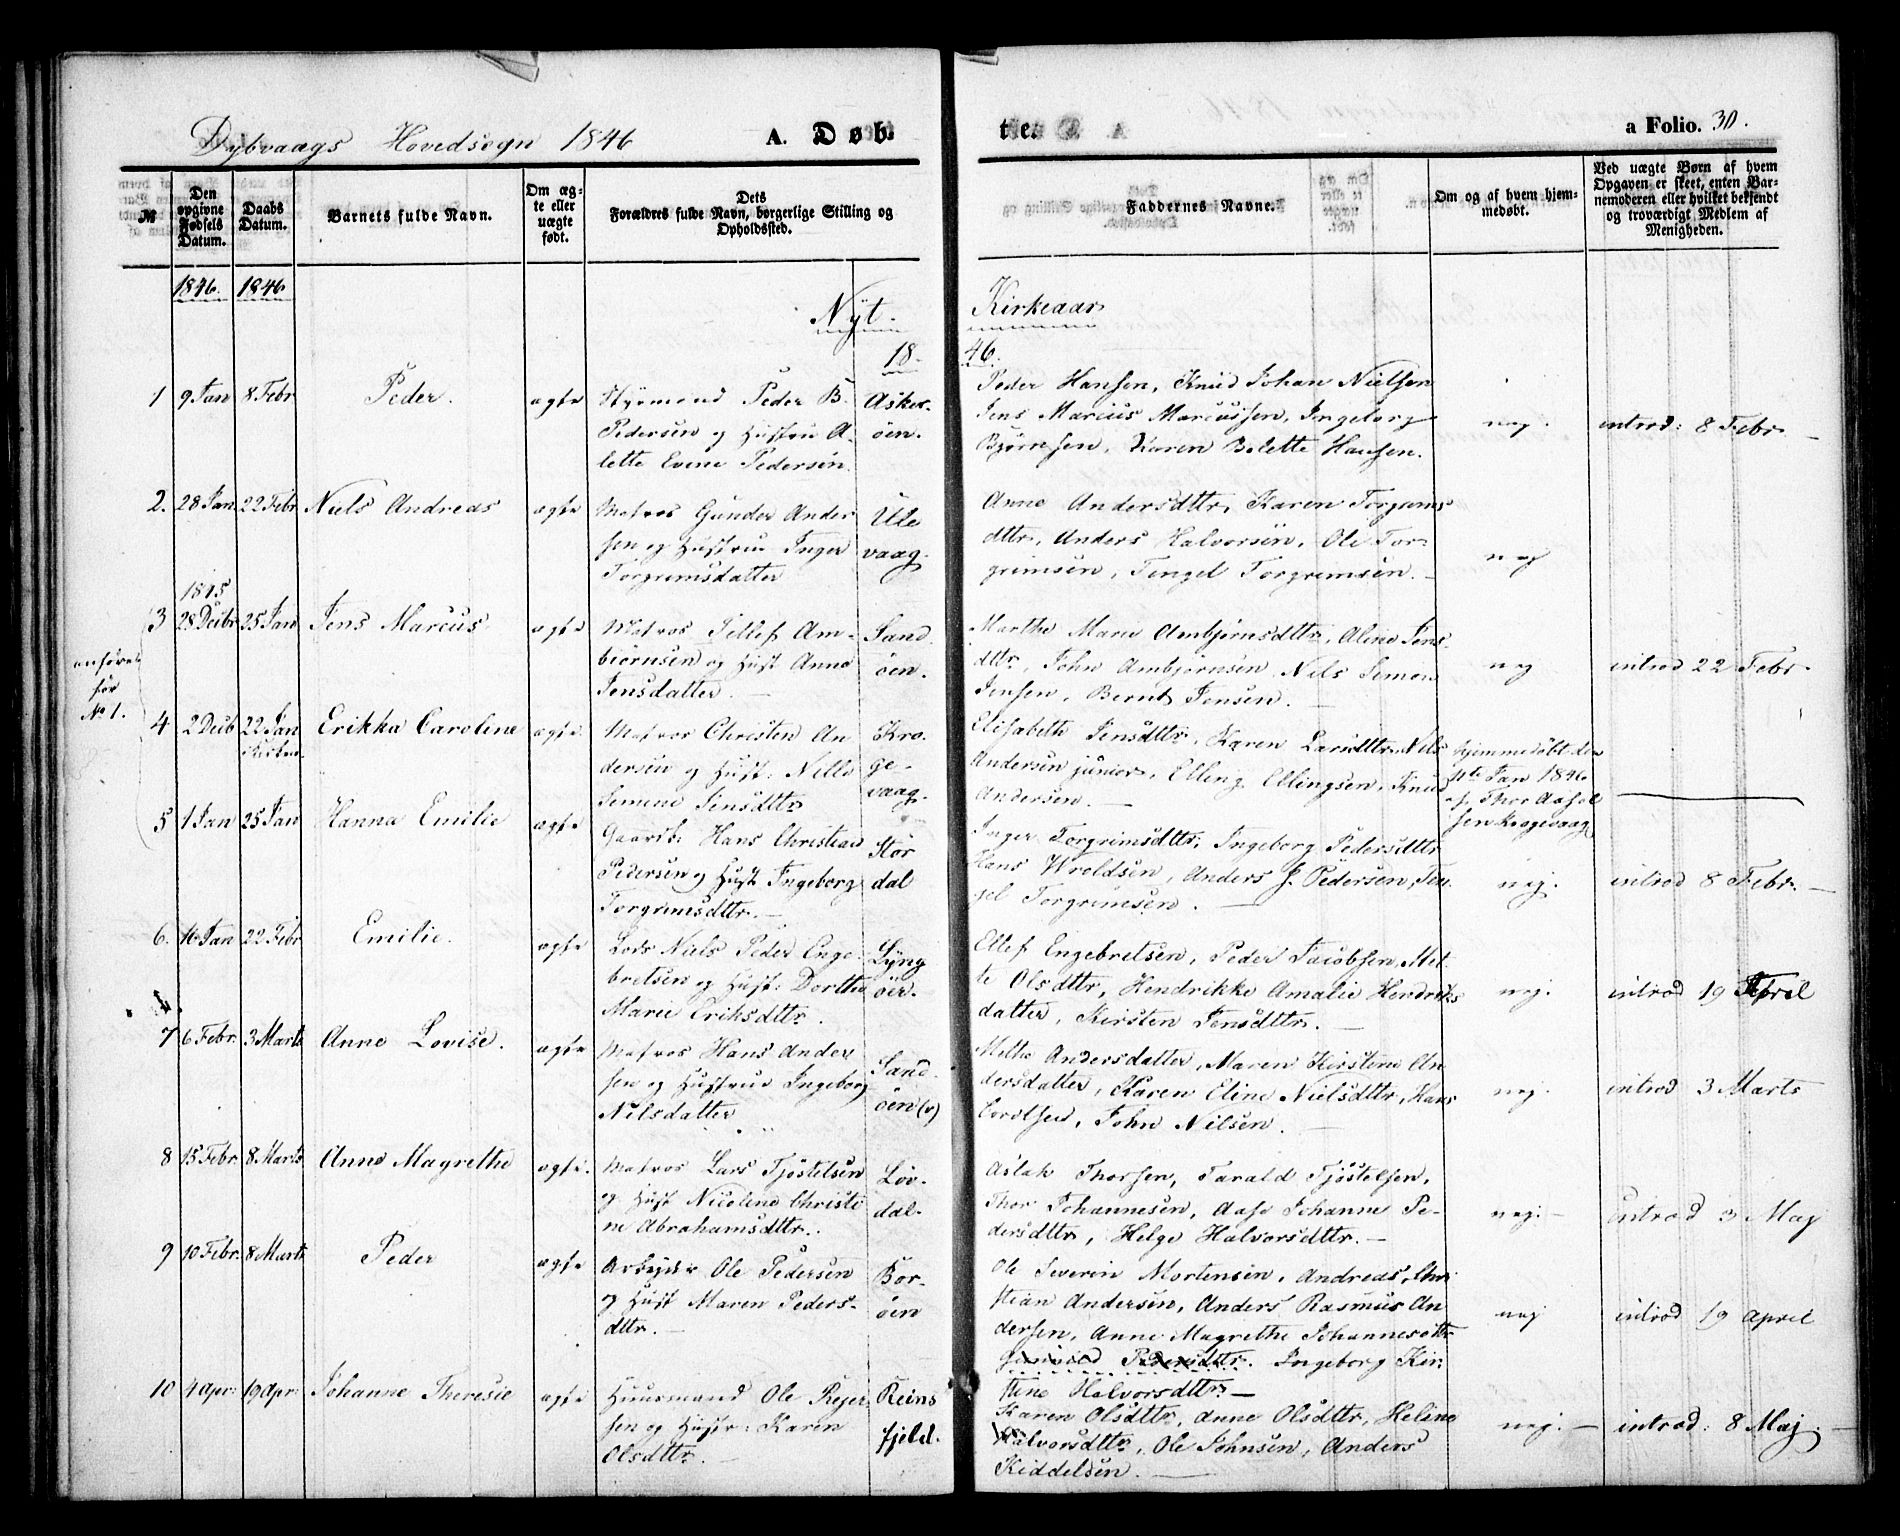 Dybvaags Hovedsogn 1846 A. Døb
te. a Folio. 30.
№ Den opgivne Fødsels Datum. Daabs Datum. Barnets fulde Navn. Om ægte eller uægte født. Dets Forældres fulde Navn, borgerlige Stilling og Opholdssted.
Faddernes Navne. Om og af hvem hjemmedøbt. Ved uægte Børn af hvem Opgaven er skeet, enten Barnemoderen eller hvilket bekjendt og troværdigt Medlem af Menigheden.
1846. 1846
Nyt. Kirkeaar
18 46.
1 9 Jan 8 Febr Peder. ægte
Peder B. Asker-
Pedersen og Hustru A- öen.
lette Evine Pedersen.
Peder Hansen, Knud Johan Nielsen
Jens Marcius Marcussen, Ingeborg
Bjørnsen, Karen Bolette Hansen.
nej. introd: 8 Febr.
2. 28 Jan 22 Febr Niels Andreas ægte
Matros Gunder Ander Ule
sen og Hustrue Inger vaag.
Torgrimsdatter
Anne Andersdttr, Karen Torgrims
dttr, Anders Halvorsen, Ole Tor-
grimsen, Tengel Torgrimsen.
nej
1845
3 28 Decbr 25 Jan Jens Marcus ægte
Matros Tellef Am- Sand
biörnsen og Hust Anne öen.
Jensdatter.
Marthe Marie Ambjørnsdttr, Aline Jens
dttr, John Ambjörnsen Nils Simon
Jensen, Bernt Jensen.
nej introd 22 Febr.
anføres
før
No 1.
4 2 Decb 22 Jan Erikka Caroline ægte.
Matros Christen An Kro.
dersen og Hust: Nille ge-
Semine Jensdttr vaag.
Elisabeth Jensdttr, Karen Larsdttr, Nils
Andersen junior, Elling Ellingsen, Knud
Andersen.
hjemmedöbt den
Jan 1846
af Thor Aasol
sen Krogevaag
5 1 Jan 25 Jan Hanna Emilie ægte
Gaardb: Hans Christian Stor
Pedersen og Hust Ingeborg dal
Torgrimsdttr.
Inger Torgrimsdttr, Ingeborg Pedersdttr
Hans Wroldsen, Anders J. Pedersen, Ten
gel Torgrimsen.
nej. introd 8 Febr.
6. 16 Jan 22 Febr Emilie. ægte
Lods Niels Peder Enge Lyng
bretsen og Hust: Dorthea öer.
Marie Eriksdttr.
Ellef Engebretsen, Peder Jacobsen, Met
te Olsdttr, Hendrikke Amalie Hendriks
datter, Kirsten Jensdttr.
nej. introd 19 April
7 6 Febr. 3 Marts Anne Lovise. ægte
Matros Hans Ander Sand
sen og Hustrue Ingeborg öen(v)
Nilsdatter
Methe Andersdatter, Maren Kirstine An
dersdatter, Karen Eline Nielsdttr, Hans
Cordtsen, John Nilsen.
nej. introd 3 Marts
8 15 Febr. 8 Marts Anne Magrethe ægte.
Matros Lars Tjöstelsen Löv-
og Hust Nicoline Christi dal.
ne Abrahamsdttr.
Aslak Thorsen, Tarald Tjöstelsen,
Thor Johannesen, Aase Johanne Pe-
dersdttr, Helge Halvorsdttr.
nej. introd 3 Maj
9 10 Febr. 8 Marts Peder ægte
Arbejder Ole Pedersen Bor-
og Hust Maren Peders- öen
dttr.
Ole Severin Mortensen, Andreas Chri
stian Andersen, Anders Rasmus An
dersen, Anne Magrethe Johannesdttr
Pedersdttr. Ingeborg Kir
stine Halvorsdttr
nej introd 19 April
10 4 Apr: 19 Apr: Johanne Theresie ægte
Huusmand Ole Rejer Reins
sen og Hustr: Karen fjeld.
Olsdttr.
Karen Olsdttr, Anne Olsdttr, Heline
Halvorsdttr, Ole Johnsen, Anders
Kiddelsen.
nej. introd: 8 Maj.